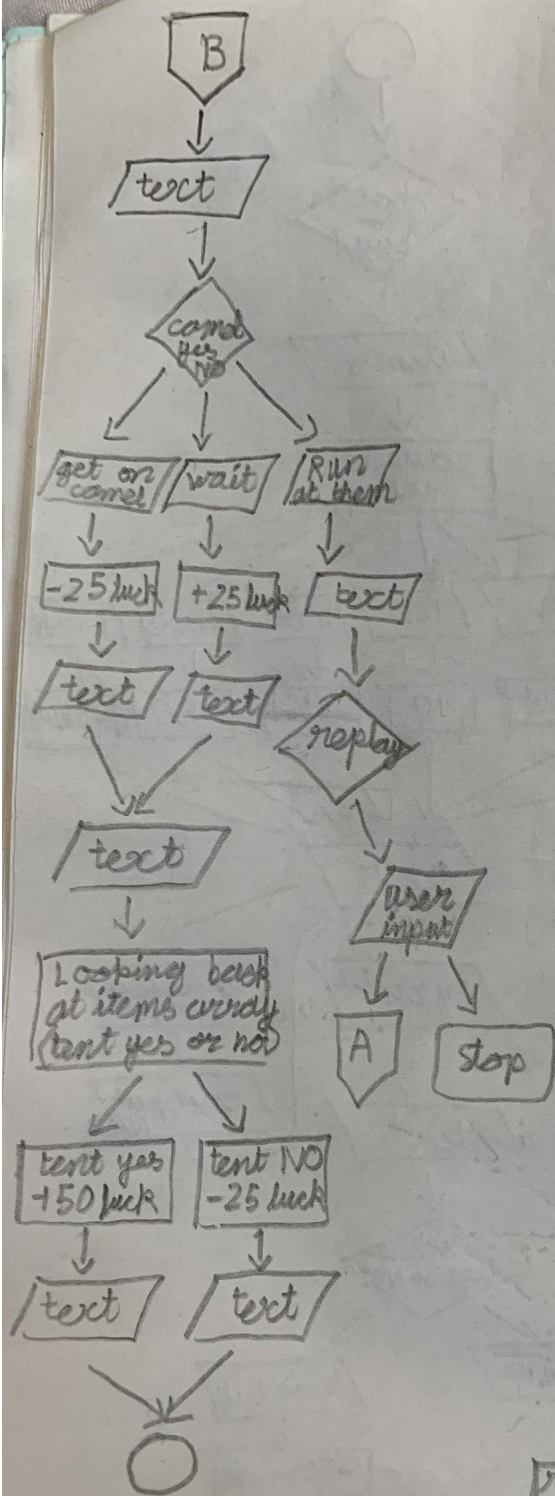 B
text
camel
yes
NO
get on
camel
wait
Run
at them
-25 luck
+25 luck
text
text
text
replay
text
user
input
Looking back
at items array
(tent yes or no)
A
Stop
tent yes
+50 luck
tent NO
-25 luck
text
text